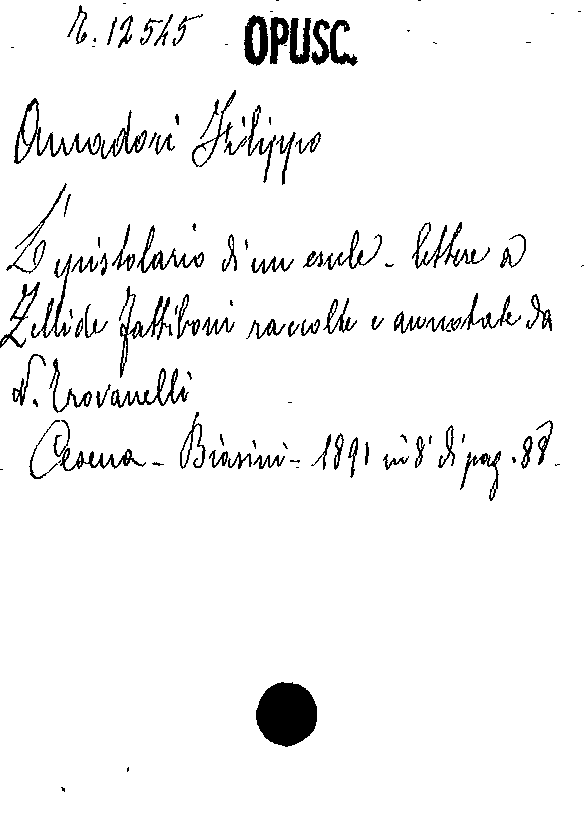 r. 12545 OPUSC.
Amadori Filippo
L'epistolario di un esule - lettere a
Zellide Fattiboni raccolte e annotate da
N. Trovanelli
Cesena - Biasini - 1891 in 8° di pag. 88.